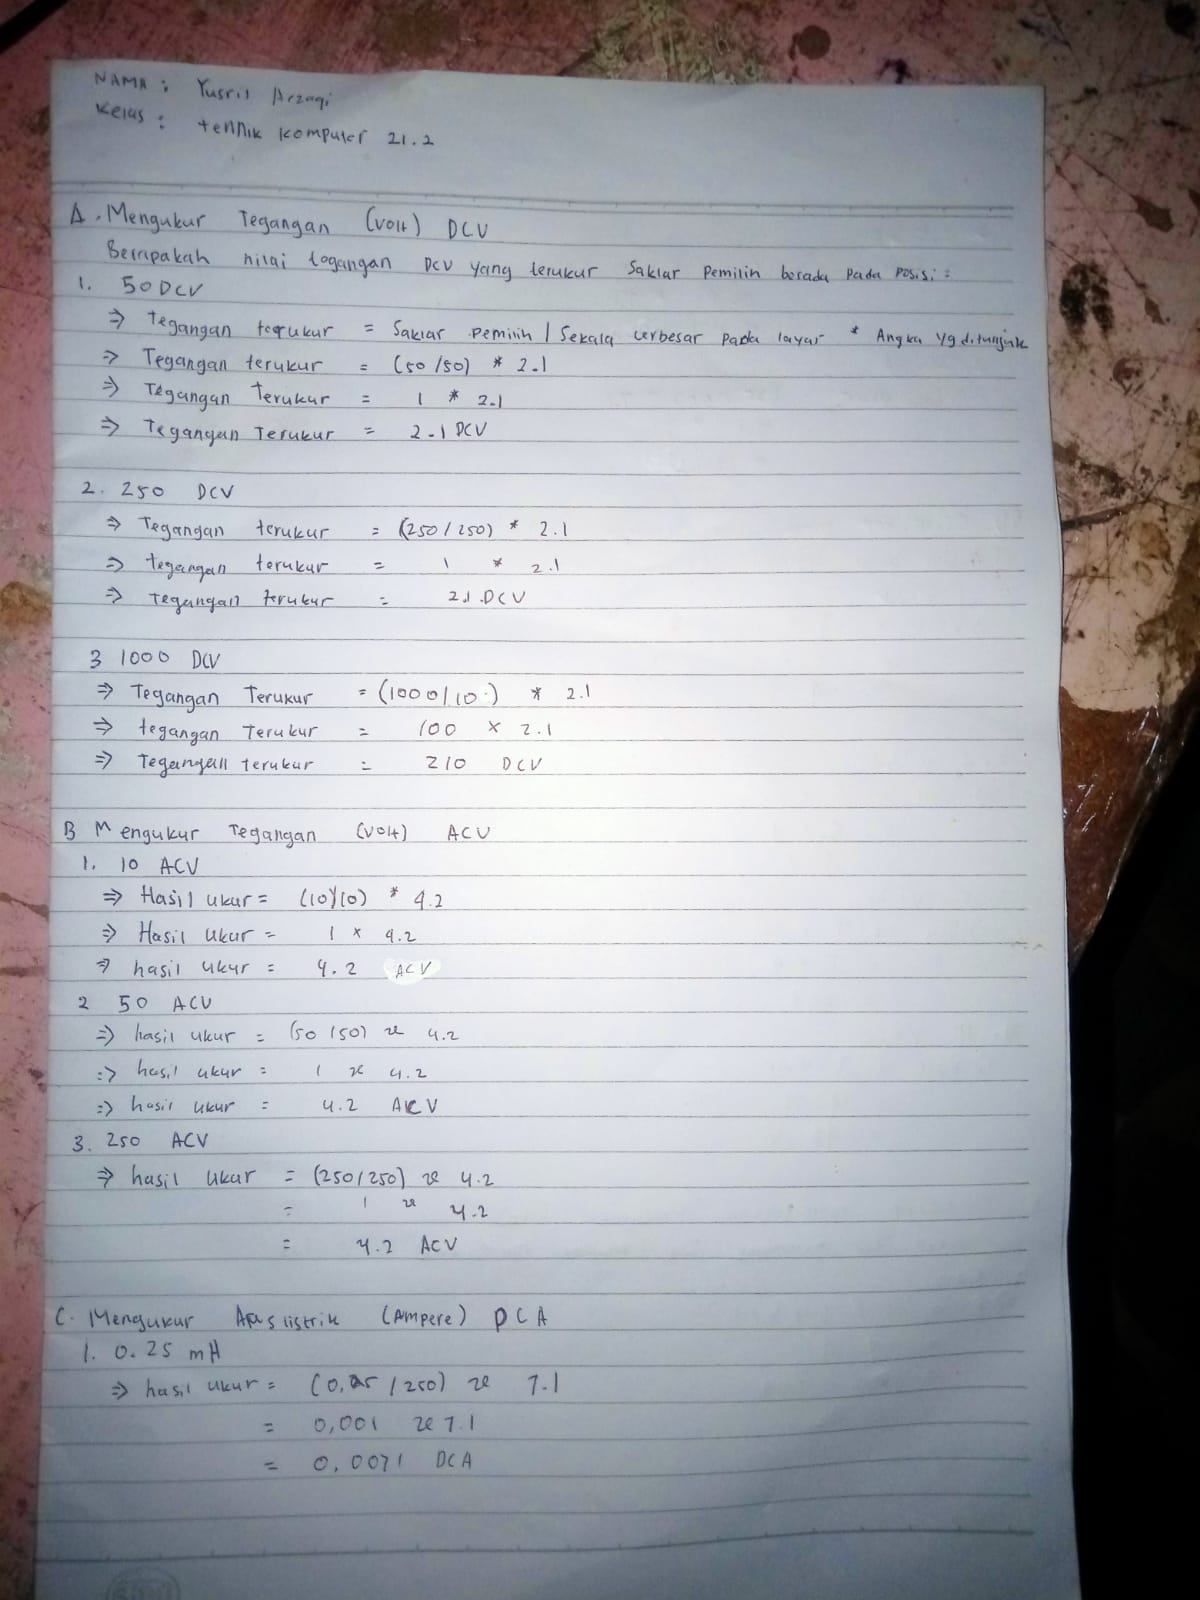 NAMA : Yusril Arzaqi
Kelas : teknik komputer 21.2
A. Mengukur Tegangan (volt) DCV
Berapakah nilai tegangan DCV yang terukur Saklar Pemilih berada pada posisi :
1. 50 DCV
⇒ Tegangan terukur = Saklar pemilih / Sekala terbesar pada layar * Angka yg ditunjuk
⇒ Tegangan terukur = (50/50) * 2.1
⇒ Tegangan Terukur = 1 * 2.1
⇒ Tegangan Terukur = 2.1 DCV
2. 250 DCV
⇒ Tegangan terukur = (250/250) * 2.1
⇒ tegangan terukur = 1 * 2.1
⇒ tegangan terukur = 2.1 DCV
3 1000 DCV
⇒ Tegangan Terukur = (1000/10) * 2.1
⇒ tegangan Terukur = 100 x 2.1
⇒ Tegangan terukur = 210 DCV
B Mengukur Tegangan (volt) ACV
1. 10 ACV
⇒ Hasil ukur = (10/10) * 4.2
⇒ Hasil Ukur = 1 x 4.2
⇒ hasil ukur = 4.2 ACV
2 50 ACV
⇒ hasil ukur = (50/50) x 4.2
⇒ hasil ukur = 1 x 4.2
⇒ hasil ukur = 4.2 ACV
3. 250 ACV
⇒ hasil ukur = (250/250) x 4.2
= 1 x 4.2
= 4.2 ACV
C. Mengukur Arus listrik (Ampere) DCA
1. 0.25 mA
⇒ hasil ukur = (0,25/250) x 7.1
= 0,001 x 7.1
= 0,0071 DCA